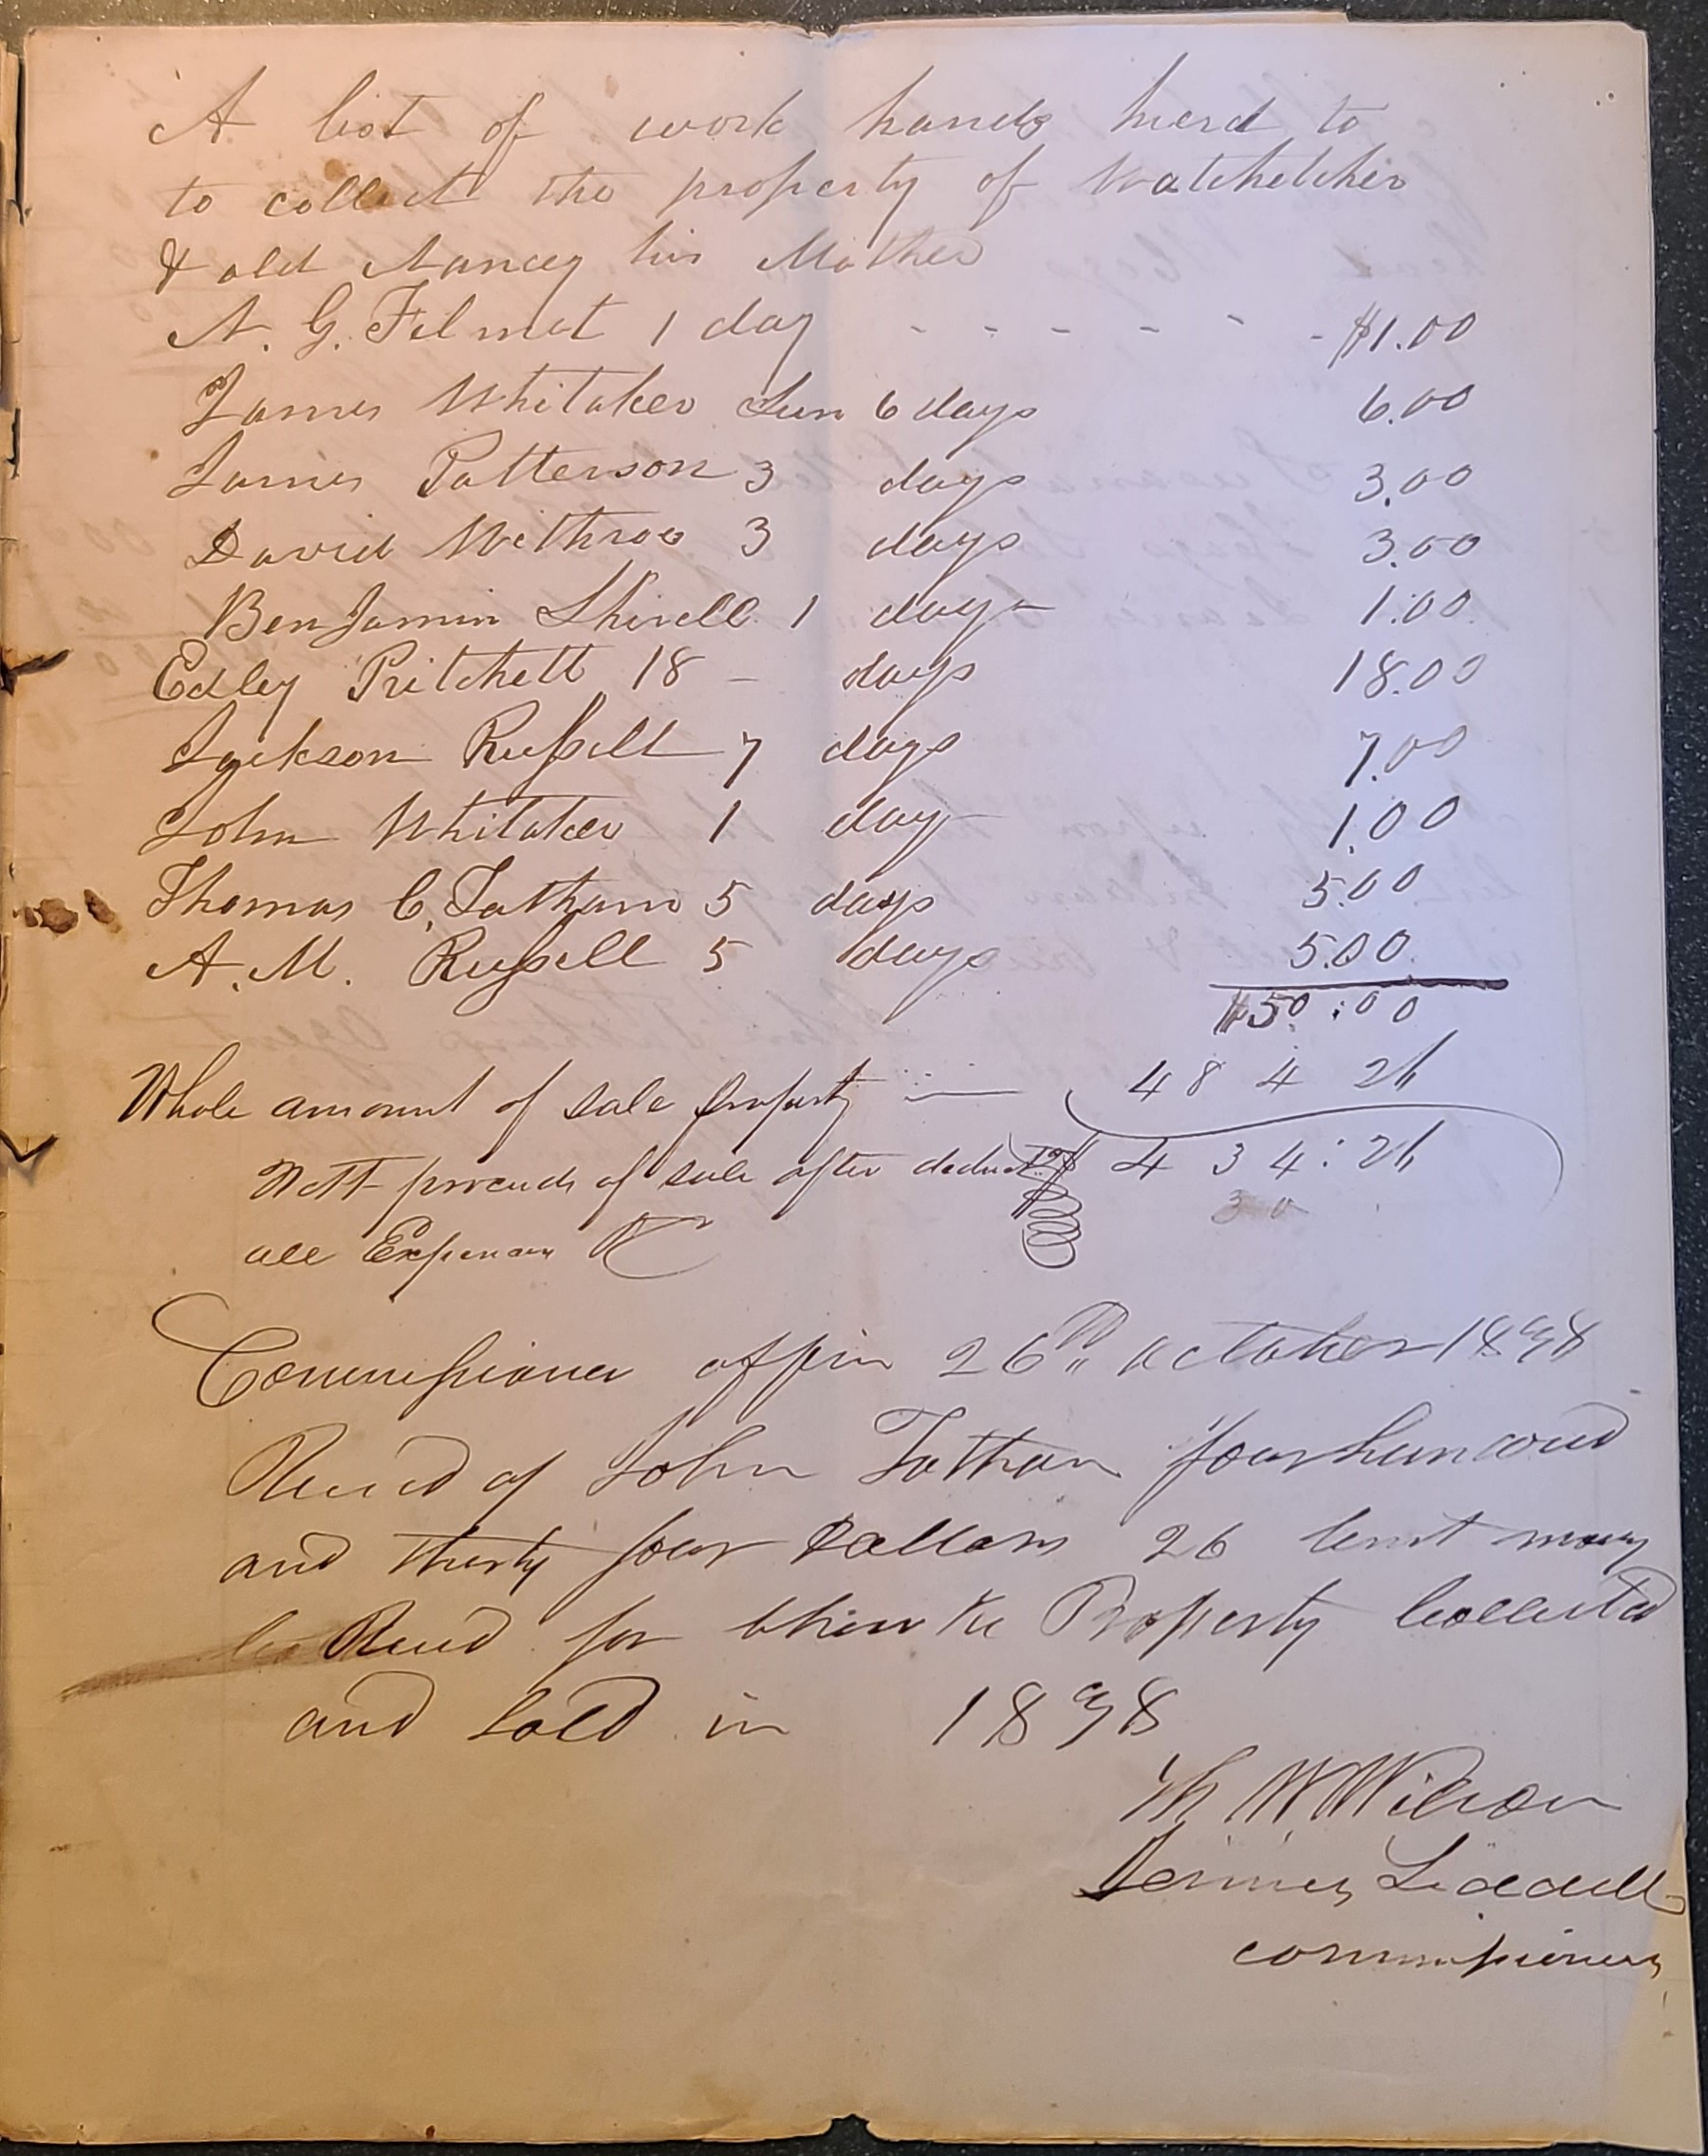 A list of work hands hierd to
to collect the property of Watchetcher
& old Nancy his Mother
N. G. Filmot 1 day - - - - - - $1.00
James Whitaker Sun 6 days 6.00
James Patterson 3 days 3.00
David Withrow 3 days 3.00
BenJamin Shirell 1 day 1.00
Edley Pritchett 18 - days 18.00
Jackson Russell 7 days 7.00
John Whitaker 1 day 1.00
Thomas C. Tatham 5 days 5.00
A. M. Russell 5 days 5.00
$50:00
Whole amount of sale property 484 26
Nett proceeds of sale after deducting $434:26
all Expenses
30
Commissioner office 26th October 1838
Received of John Tatham four hundred
and thirty four Dollars 26 Cent money
he Recd for the Property Collected
and Sold in 1838
Th W. Wilson
James Liddell
commissioners